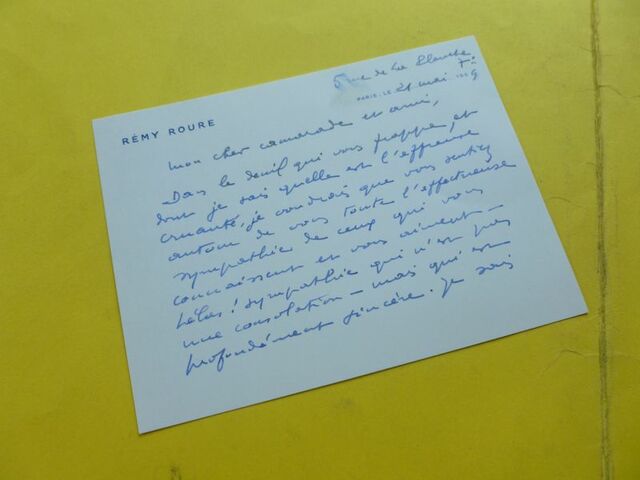 rue de la Planche
RÉMY ROURE
PARIS, LE 21 mai 195 9
mon cher camarade et ami,
Dans le deuil qui vous frappe, et
dont je sais quelle est l'affreuse
cruauté, je voudrais que vous sentiez
autour de vous toute l'affectueuse
sympathie de ceux qui vous
connaissent et vous aiment —
hélas! sympathie qui n'est pas
une consolation — mais qui est
profondément sincère. Je sais